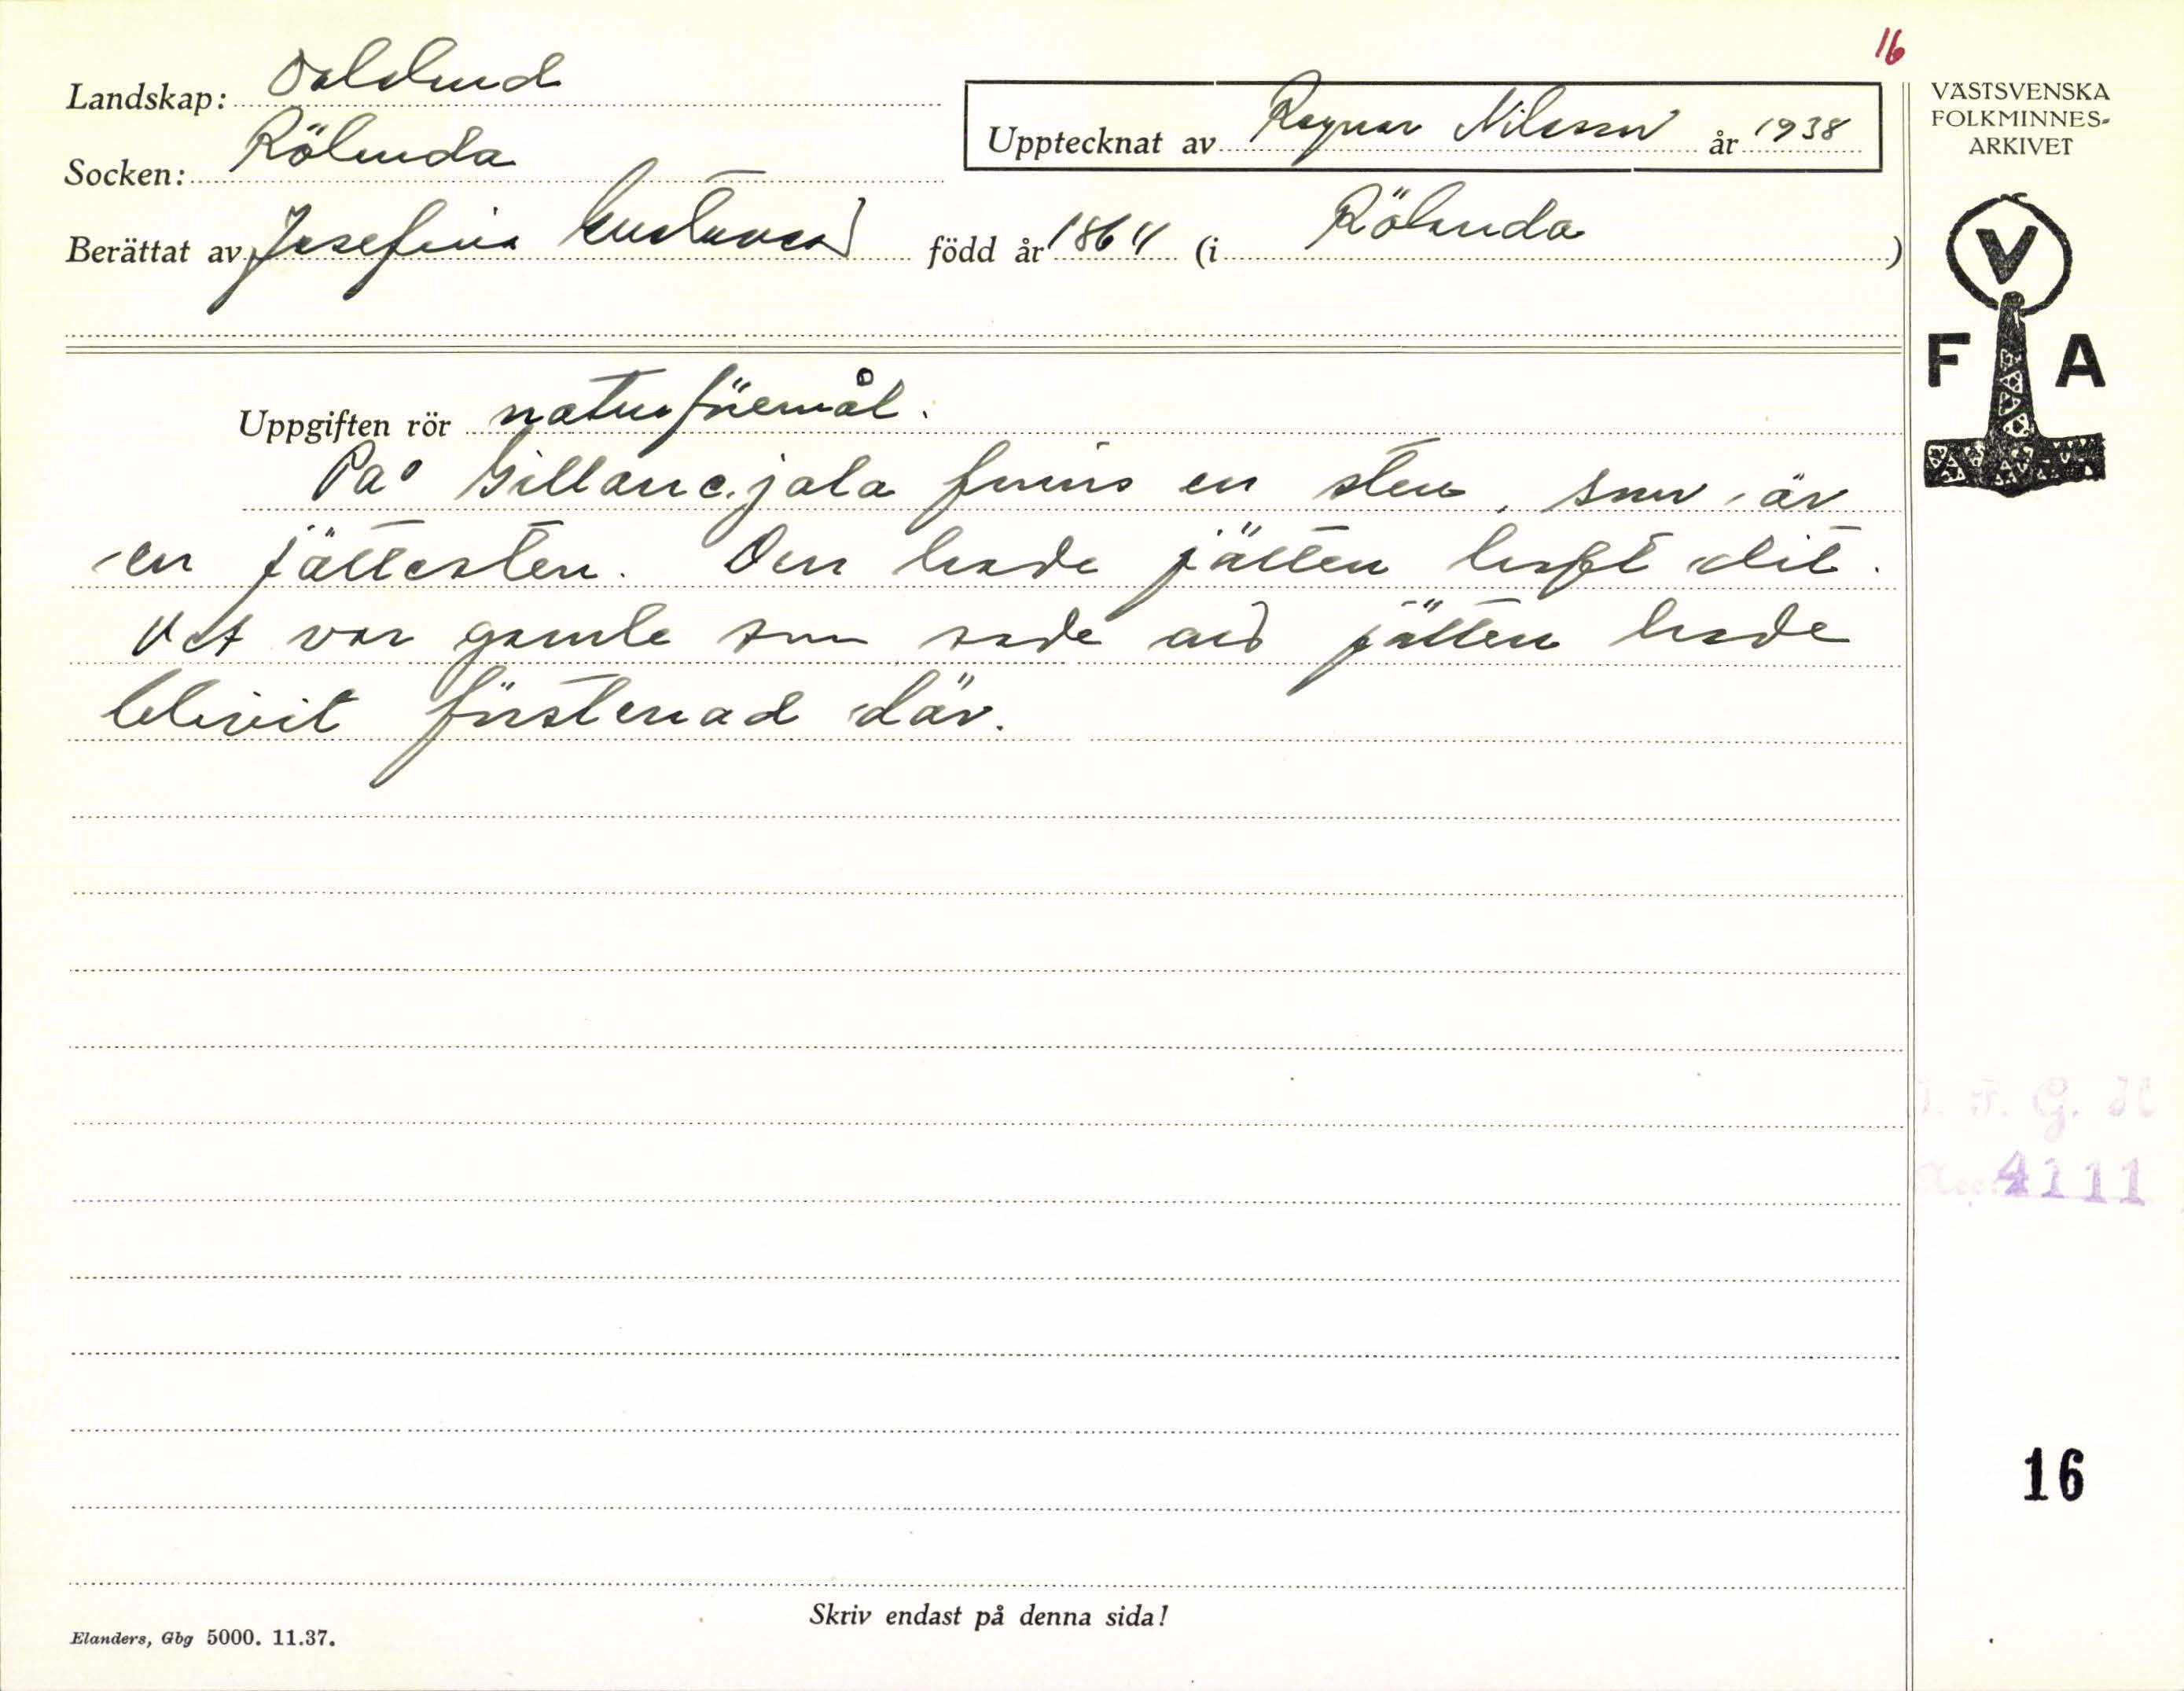 16
Landskap: Dalsland
Upptecknat av Ragnar Nilsson år 1938
Socken: Rölanda
Berättat av Josefina Gustavsson född år 1864 (i Rölanda)
VÄSTSVENSKA
FOLKMINNES-
ARKIVET
V
F A
Uppgiften rör naturföremål.
På finns en sten, som är
en jättesten. Den hade jätten haft dit.
Det var gamle som sade att jätten hade
blivit förstenad där.
4111
16
Skriv endast på denna sida!
Elanders, Gbg 5000. 11.37.